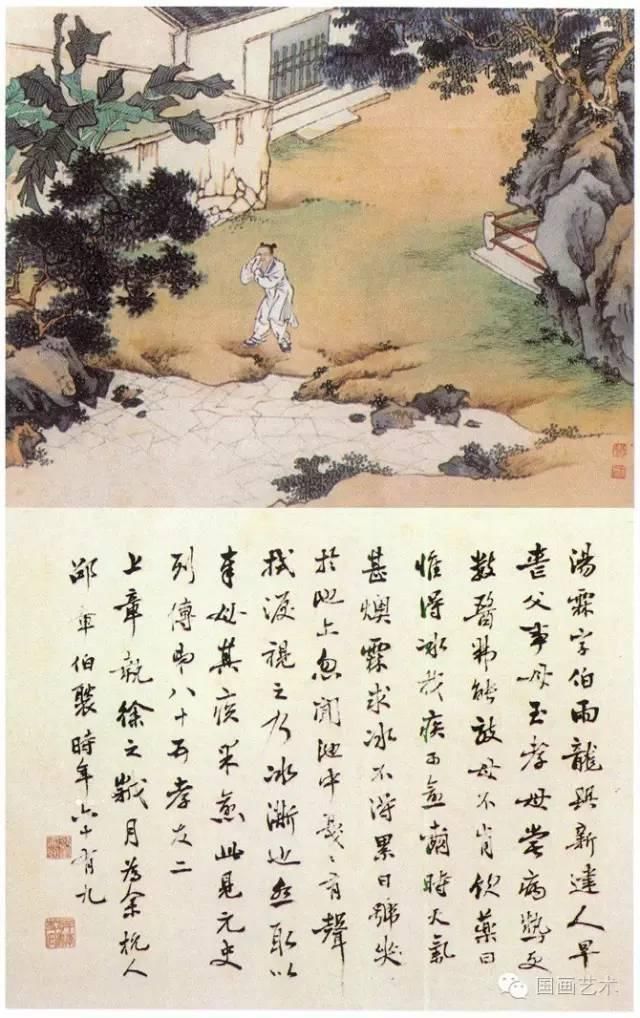 湯霖字伯雨龍興新建人早
喪父事母至孝母嘗病熱更
數醫弗能效母不肯飲藥曰
惟得冰我疾可愈爾時天氣
甚燠霖求冰不得累日號哭
於池上忽聞池中戛〻有聲
拭淚視之乃冰澌也亟取以
奉母其疾果愈此見元史
列傳弟八十五孝友二
上章執徐之歲月為余杭人
邵章伯褧時年六十有九
国画艺术